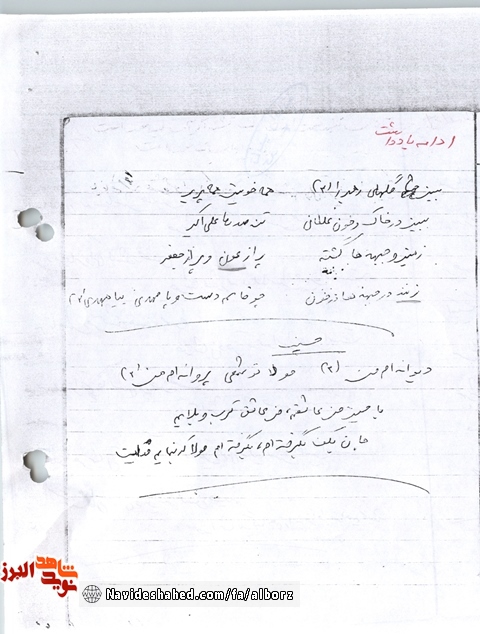 ادامه یادداشت
ببین گلهای زهرا (۲) همه خونین همه پرپر
ببین در خاک و خون غلطانی تن صدها علی اکبر
زمین و جبهه ها گشته پر از عون و پر از جعفر
زینب در جبهه ها در خون چو قاسم دست و پا مهدی بیا مهدی (۲)
حسین
دیوانه ام من (۲) مولا تو شمعی پروانه ام من (۲)
یا حسین من عاشقم، من عاشق کرب و بلایم
جان بکف بگرفته ام، بگرفته ام مولا که بنمایم فدایت
نوید شاهد البرز
Navideshahed.com/fa/alborz